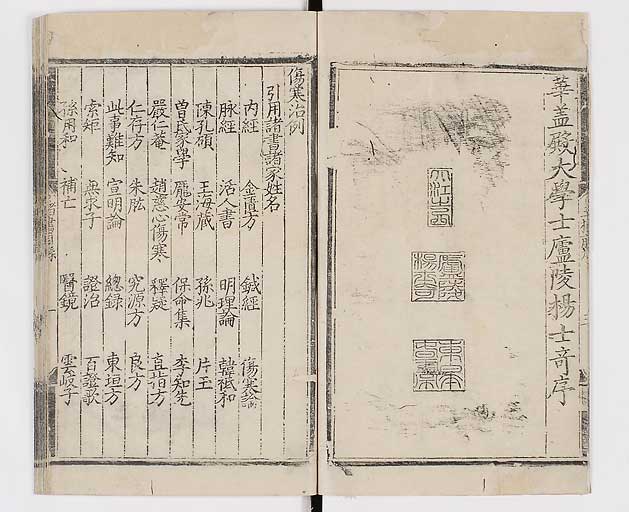 華盖殿大學士廬陵楊士竒序
廬陵楊士竒
傷寒治例
引用諸書諸家姓名
内經 金匱方 鍼經 傷寒論
脉經 活人書 明理論 韓祗和
陳孔碩 王海藏 孫兆 王
曽氏家學 龐安常 保命集 李知先
嚴仁庵 趙慈心傷寒 釋疑 直指方
仁存方 朱肱 究源方 良方
此事難知 宣明論 總錄 東垣方
索矩 無求子 證治 百證歌
孫用和 補亡 醫鏡 雲岐子